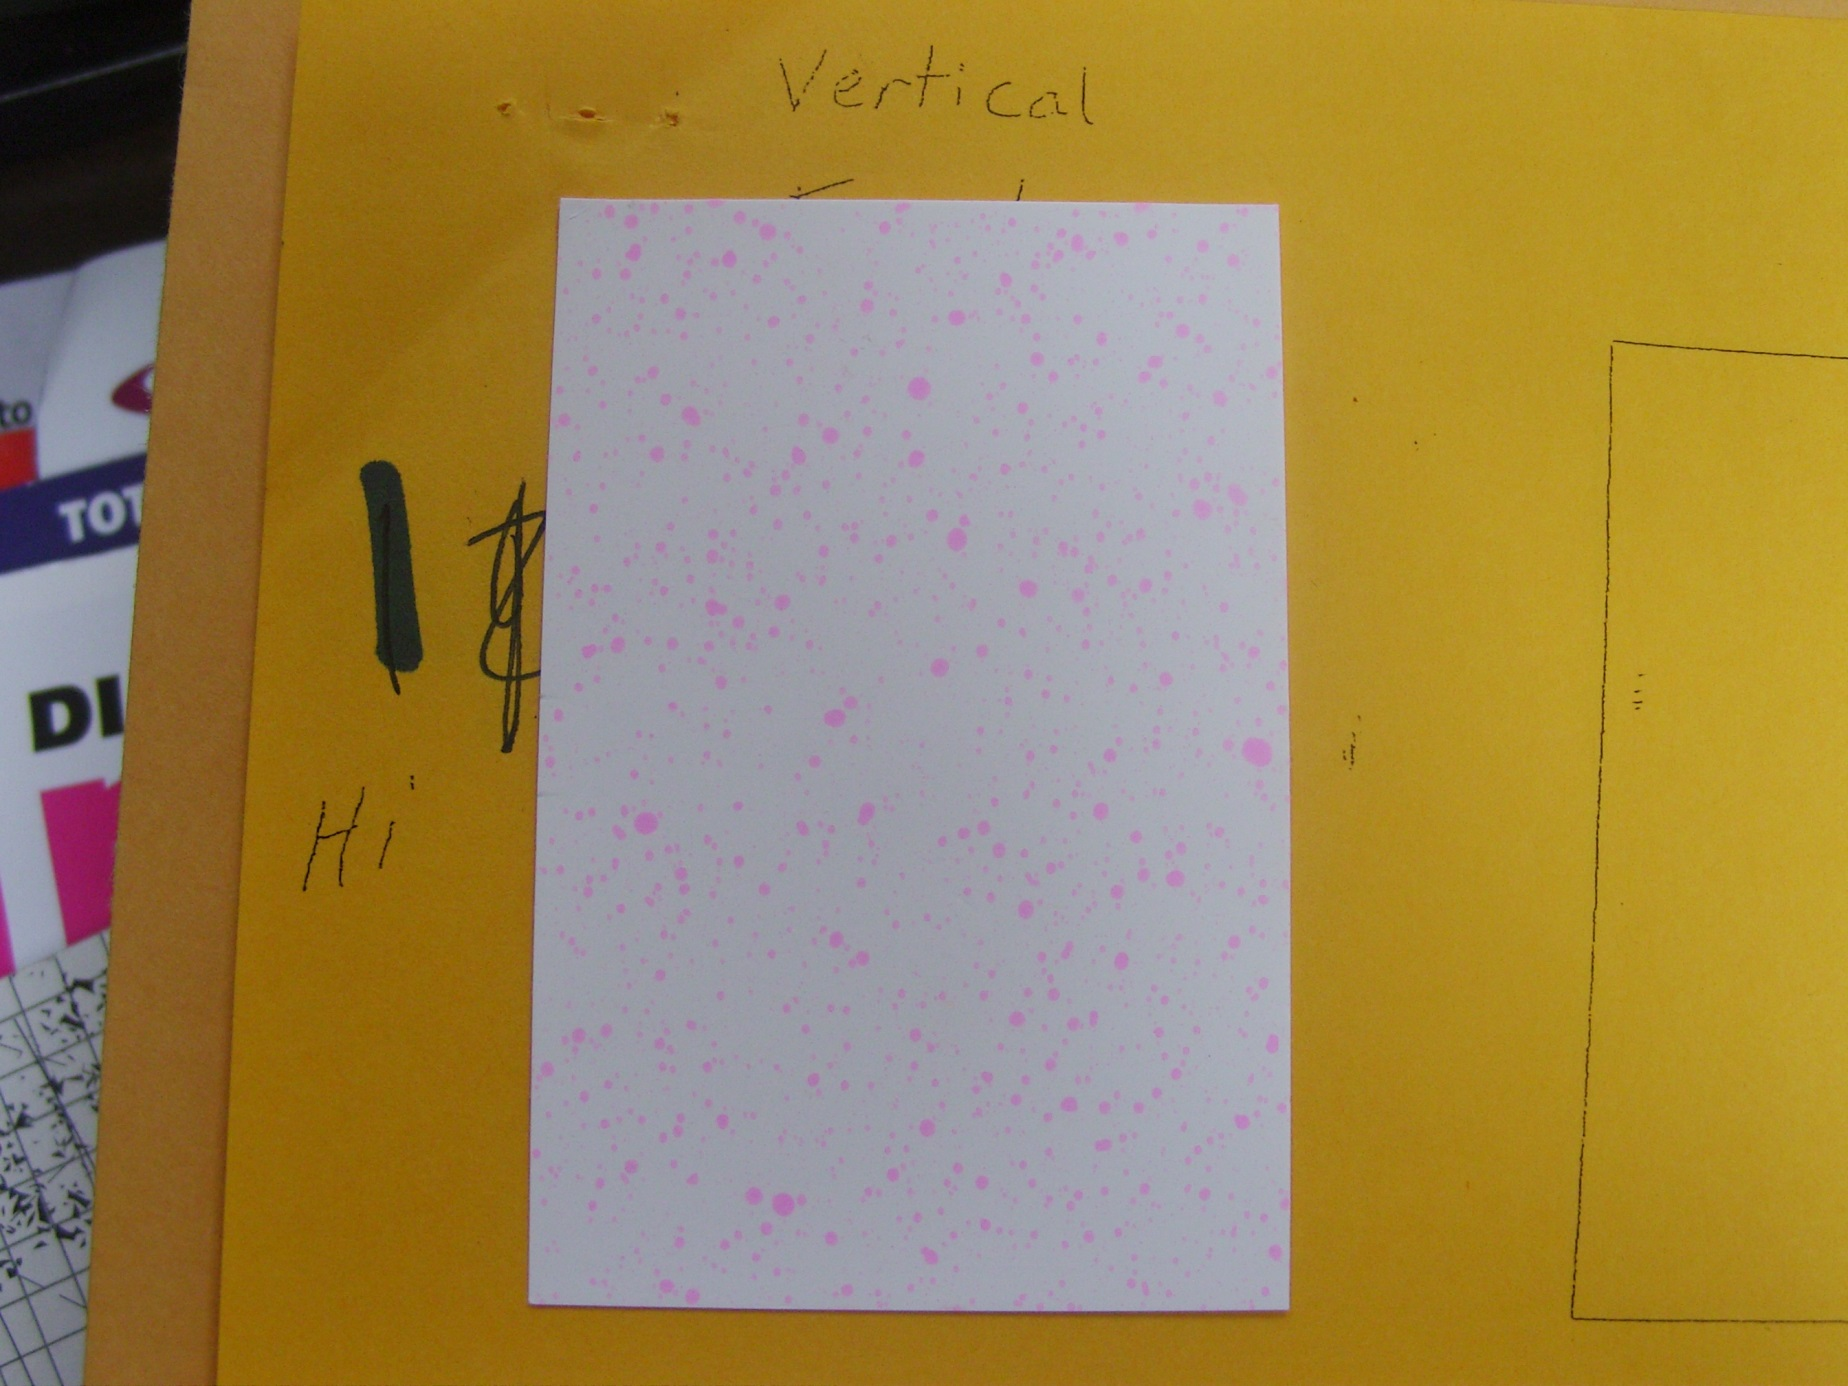 Vertical
to
TOT
DI
Hi